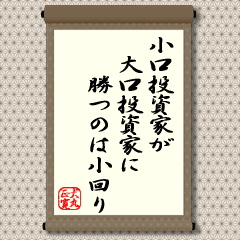 小口投資家が
大口投資家に
勝つのは小回り